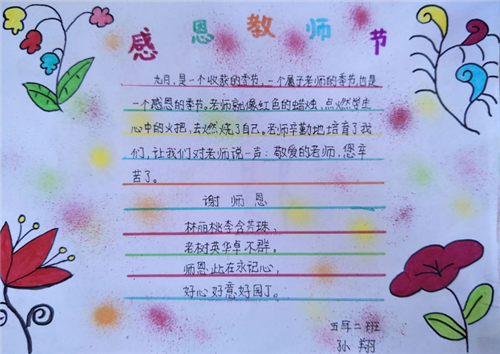 感恩教师节
九月，是一个收获的季节，一个属于老师的季节，也是
一个感恩的季节。老师就像红色的蜡烛，点燃学生
心中的火把，去燃烧了自己。老师辛勤地培育了我
们，让我们对老师说一声：敬爱的老师，您辛
苦了。
谢师恩
林丽桃李含芳珠，
老树英华卓不群。
师恩此在永记心，
好心好意好园丁。
五年二班
孙翔